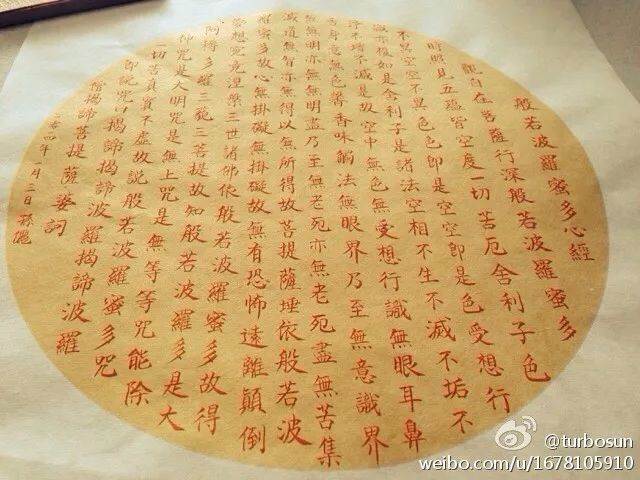 般若波羅蜜多心經
觀自在菩薩行深般若波羅蜜多
時照見五蘊皆空度一切苦厄舍利子色
不異空空不異色色即是空空即是色受想行
識亦復如是舍利子是諸法空相不生不滅不垢不
淨不增不減是故空中無色無受想行識無眼耳鼻
舌身意無色聲香味觸法無眼界乃至無意識界
無無明亦無無明盡乃至無老死亦無老死盡無苦集
滅道無智亦無得以無所得故菩提薩埵依般若波
羅蜜多故心無掛礙無掛礙故無有恐怖遠離顛倒
夢想究竟涅槃三世諸佛依般若波羅蜜多故得
阿耨多羅三藐三菩提故知般若波羅蜜多是大
神咒是大明咒是無上咒是無等等咒能除
一切苦真實不虛故說般若波羅蜜多咒
即說咒曰揭諦揭諦波羅揭諦波羅
僧揭諦菩提薩婆訶
四年一月二日 孫儷
@turbosun
weibo.com/u/1678105910